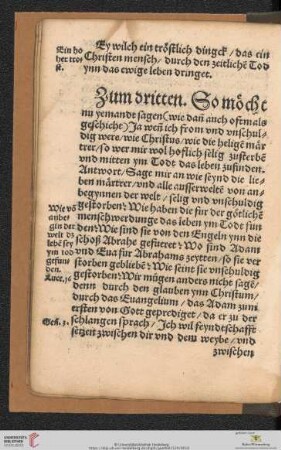 Ein ho
her tro
st.
Ey wilch ein tröstlich dingck / das ein
Christen mensch / durch den zeitlichē Tod
ynn das ewige leben dringet.
Zum dritten. So möcht
nu yemandt sagen (wie dañ auch oftmals
geschicht) Ja weñ ich from vnd vnschul-
dig were / wie Christus / wie die heligē mār
trer / so wer mir wol hoflich selig zusterbē
vnd mitten ym Todt das leben zufinden.
Antwort / Sage mir an wie seynd die lie-
ben mārtrer / vnd alle ausserwelte von an-
begynnen der welt / selig vnd vnschuldig
gestorben? Wie haben die fur der götlichē
menschwerdunge das leben ym Tode fun
den? Wie sind sie von den Engeln ynn die
schoß Abrahe gefueret? Wo sind Adam
vnd Eua fur Abrahams zeytten / so sie ver
storben gebliebē? Wie seint sie vnschuldig
gestorben? Wir mügen anders nicht sagē /
denn durch den glauben ynn Christum /
durch das Euangelium / das Adam zum
ersten von Gott geprediget / da er zu der
schlangen sprach / Jch wil feyndtschafft
setzen zwischen dir vnd dem weybe / vnd
zwischen
Wie vō
anbe-
gin der
welt dz
lebē sey
ym tod
gefun
den.
Luce.16
Gen. 3.
UNIVERSITÄTS-
BIBLIOTHEK
HEIDELBERG